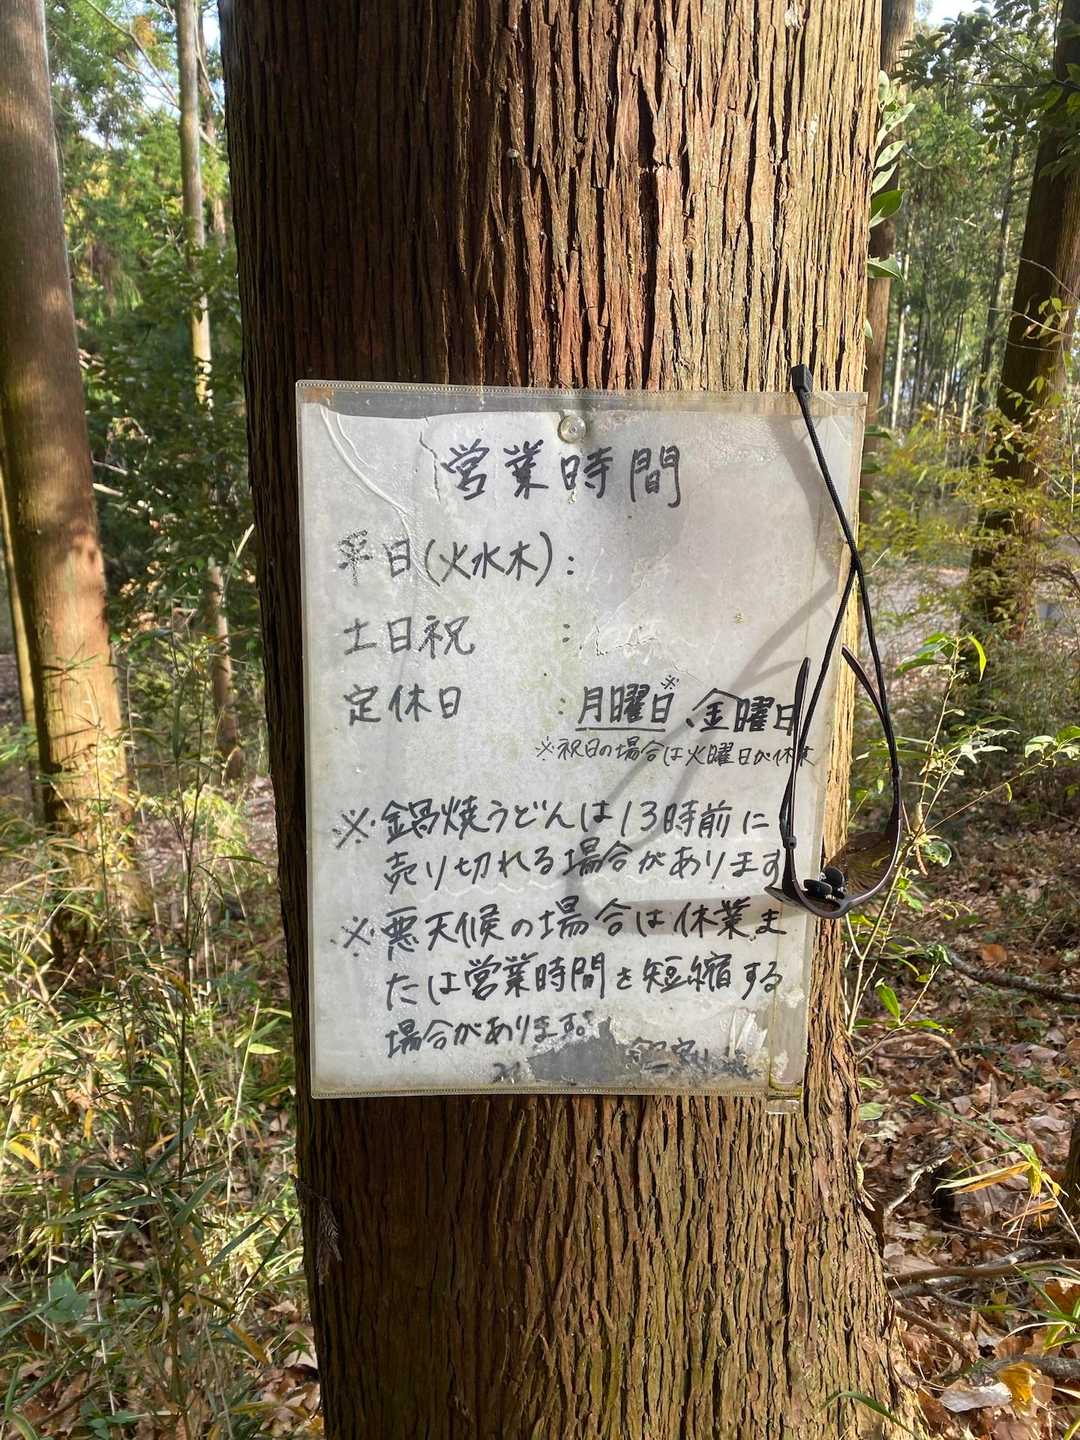 営業時間
平日(火水木):
土日祝　:
定休日　:月曜日※、金曜日
※祝日の場合は火曜日が休業
※鍋焼うどんは13時前に
売り切れる場合があります
※悪天候の場合は休業ま
たは営業時間を短縮する
場合があります。